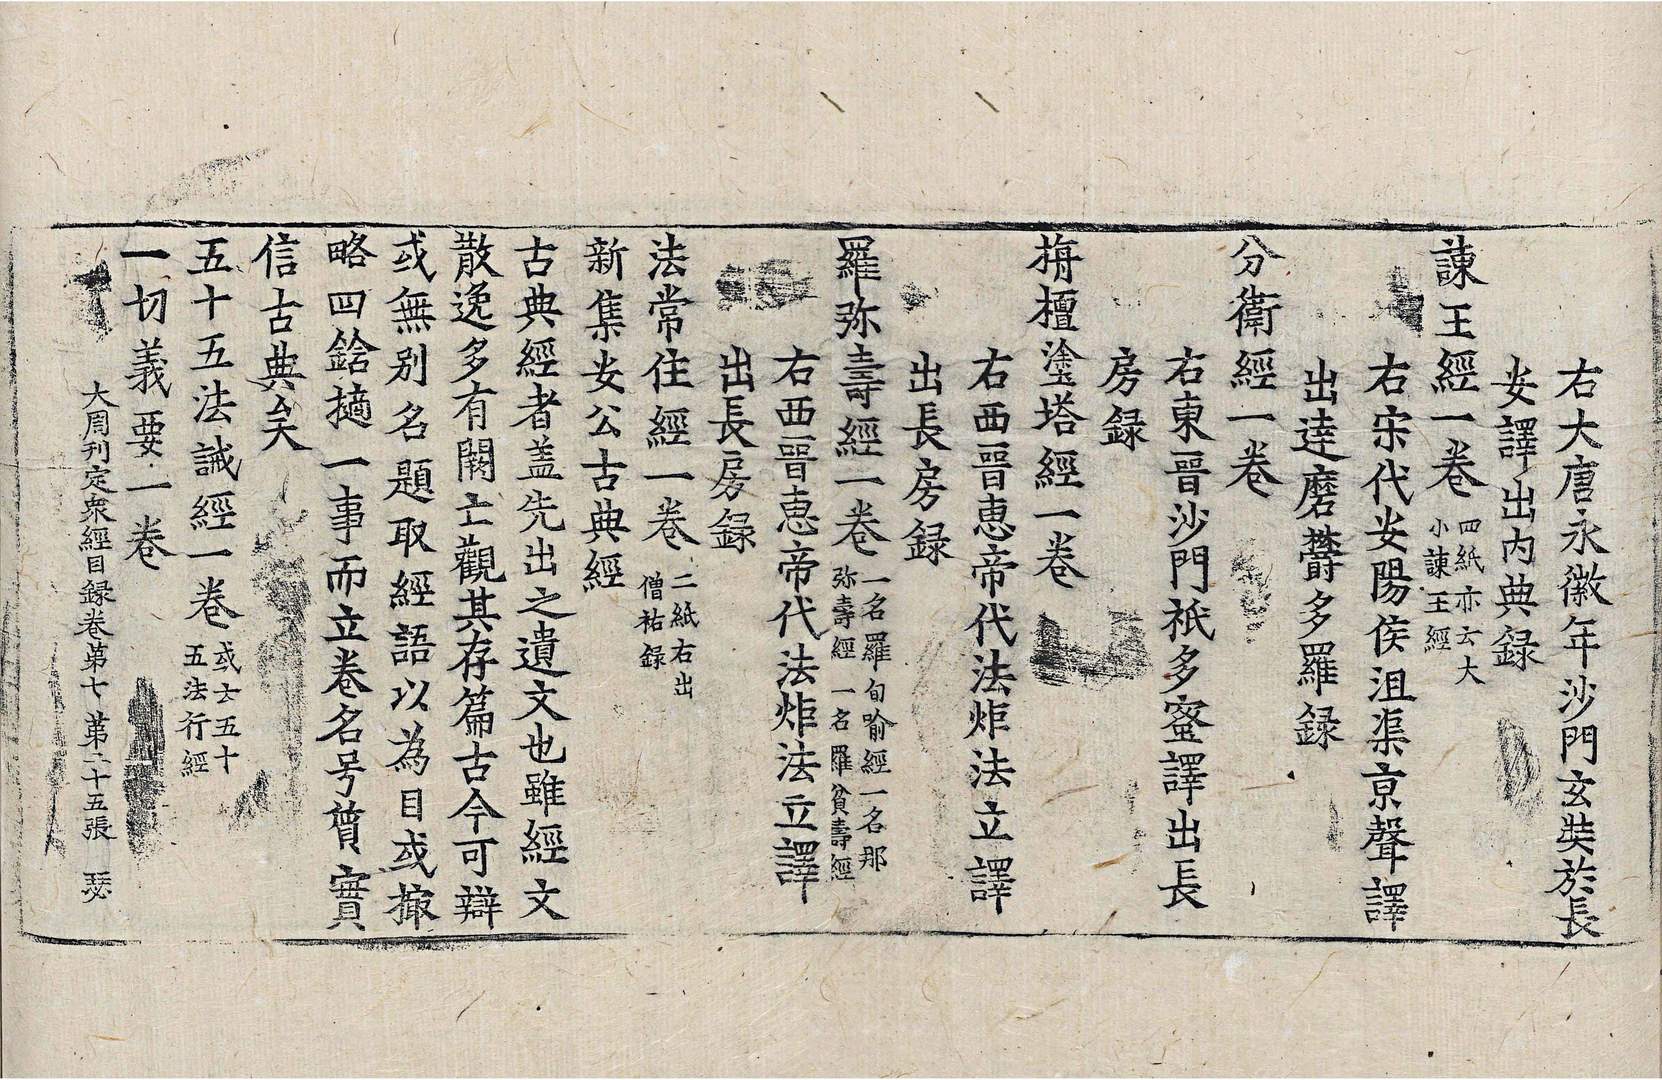 右大唐永徽年沙門玄奘於長
安譯出内典録
諫王經一卷 四紙亦云大
小諫王經
右宋代安陽侯沮渠京聲譯
出達磨欝多羅録
分衛經一卷
右東晉沙門祇多蜜譯出長
房録
栴檀塗塔經一卷
右西晉惠帝代法炬法立譯
出長房録
羅弥壽經一卷 一名羅旬喻經一名那
弥壽經 一名羅貧壽經
右西晉惠帝代法炬法立譯
出長房録
法常住經一卷 二紙右出
僧祐録
新集安公古典經
古典經者盖先出之遺文也雖經文
散逸多有闕亡觀其存篇古今可辯
或無别名題取經語以為目或撮
略四鋡擿一事而立卷名号質實
信古典矣
五十五法誡經一卷 或云五十
五法行經
一切義要一卷
大周刊定衆經目録卷第七 第二十五張 瑟